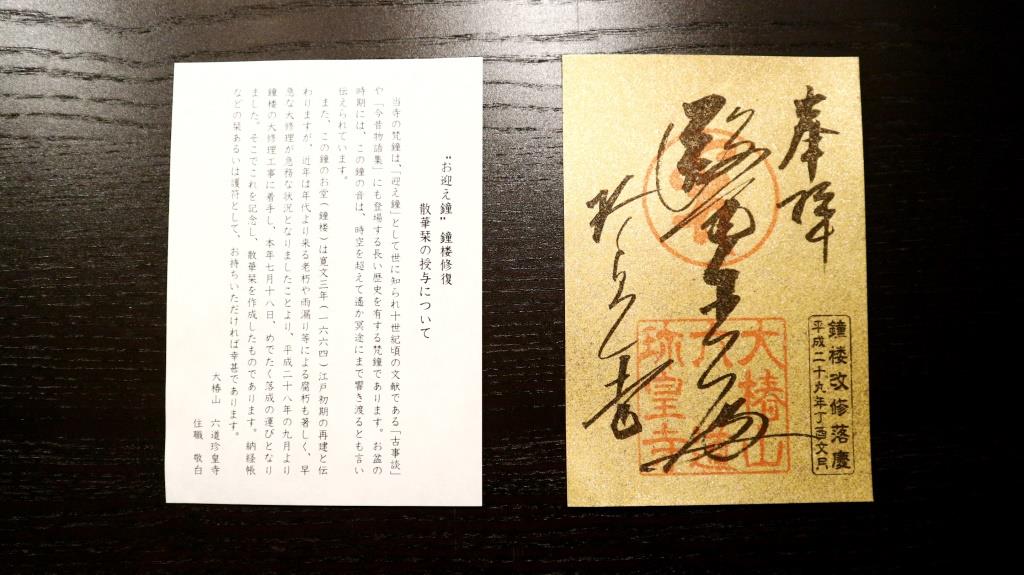 “お迎え鐘” 鐘楼修復
散華栞の授与について
当寺の梵鐘は、「迎え鐘」として世に知られ十世紀頃の文献である「古事談」
や「今昔物語集」にも登場する長い歴史を有する梵鐘であります。お盆の
時期には、この鐘の音は、時空を超えて遥か冥途にまで響き渡るとも言い
伝えられています。
また、この鐘のお堂(鐘楼)は寛文三年(一六六四)江戸初期の再建と伝
わりますが、近年は年代より来る老朽や雨漏り等による腐朽も著しく、早
急な大修理が急務な状況となりましたことより、平成二十八年の九月より
鐘楼の大修理工事に着手し、本年七月十八日、めでたく落成の運びとなり
ました。そこでこれを記念し、散華栞を作成したものであります。納経帳
などの栞あるいは護符として、お持ちいただければ幸甚であります。
大椿山 六道珍皇寺
住職 敬白
奉拝
鐘楼改修落慶
平成二十九年丁酉文月
大椿山
六道
珍皇寺